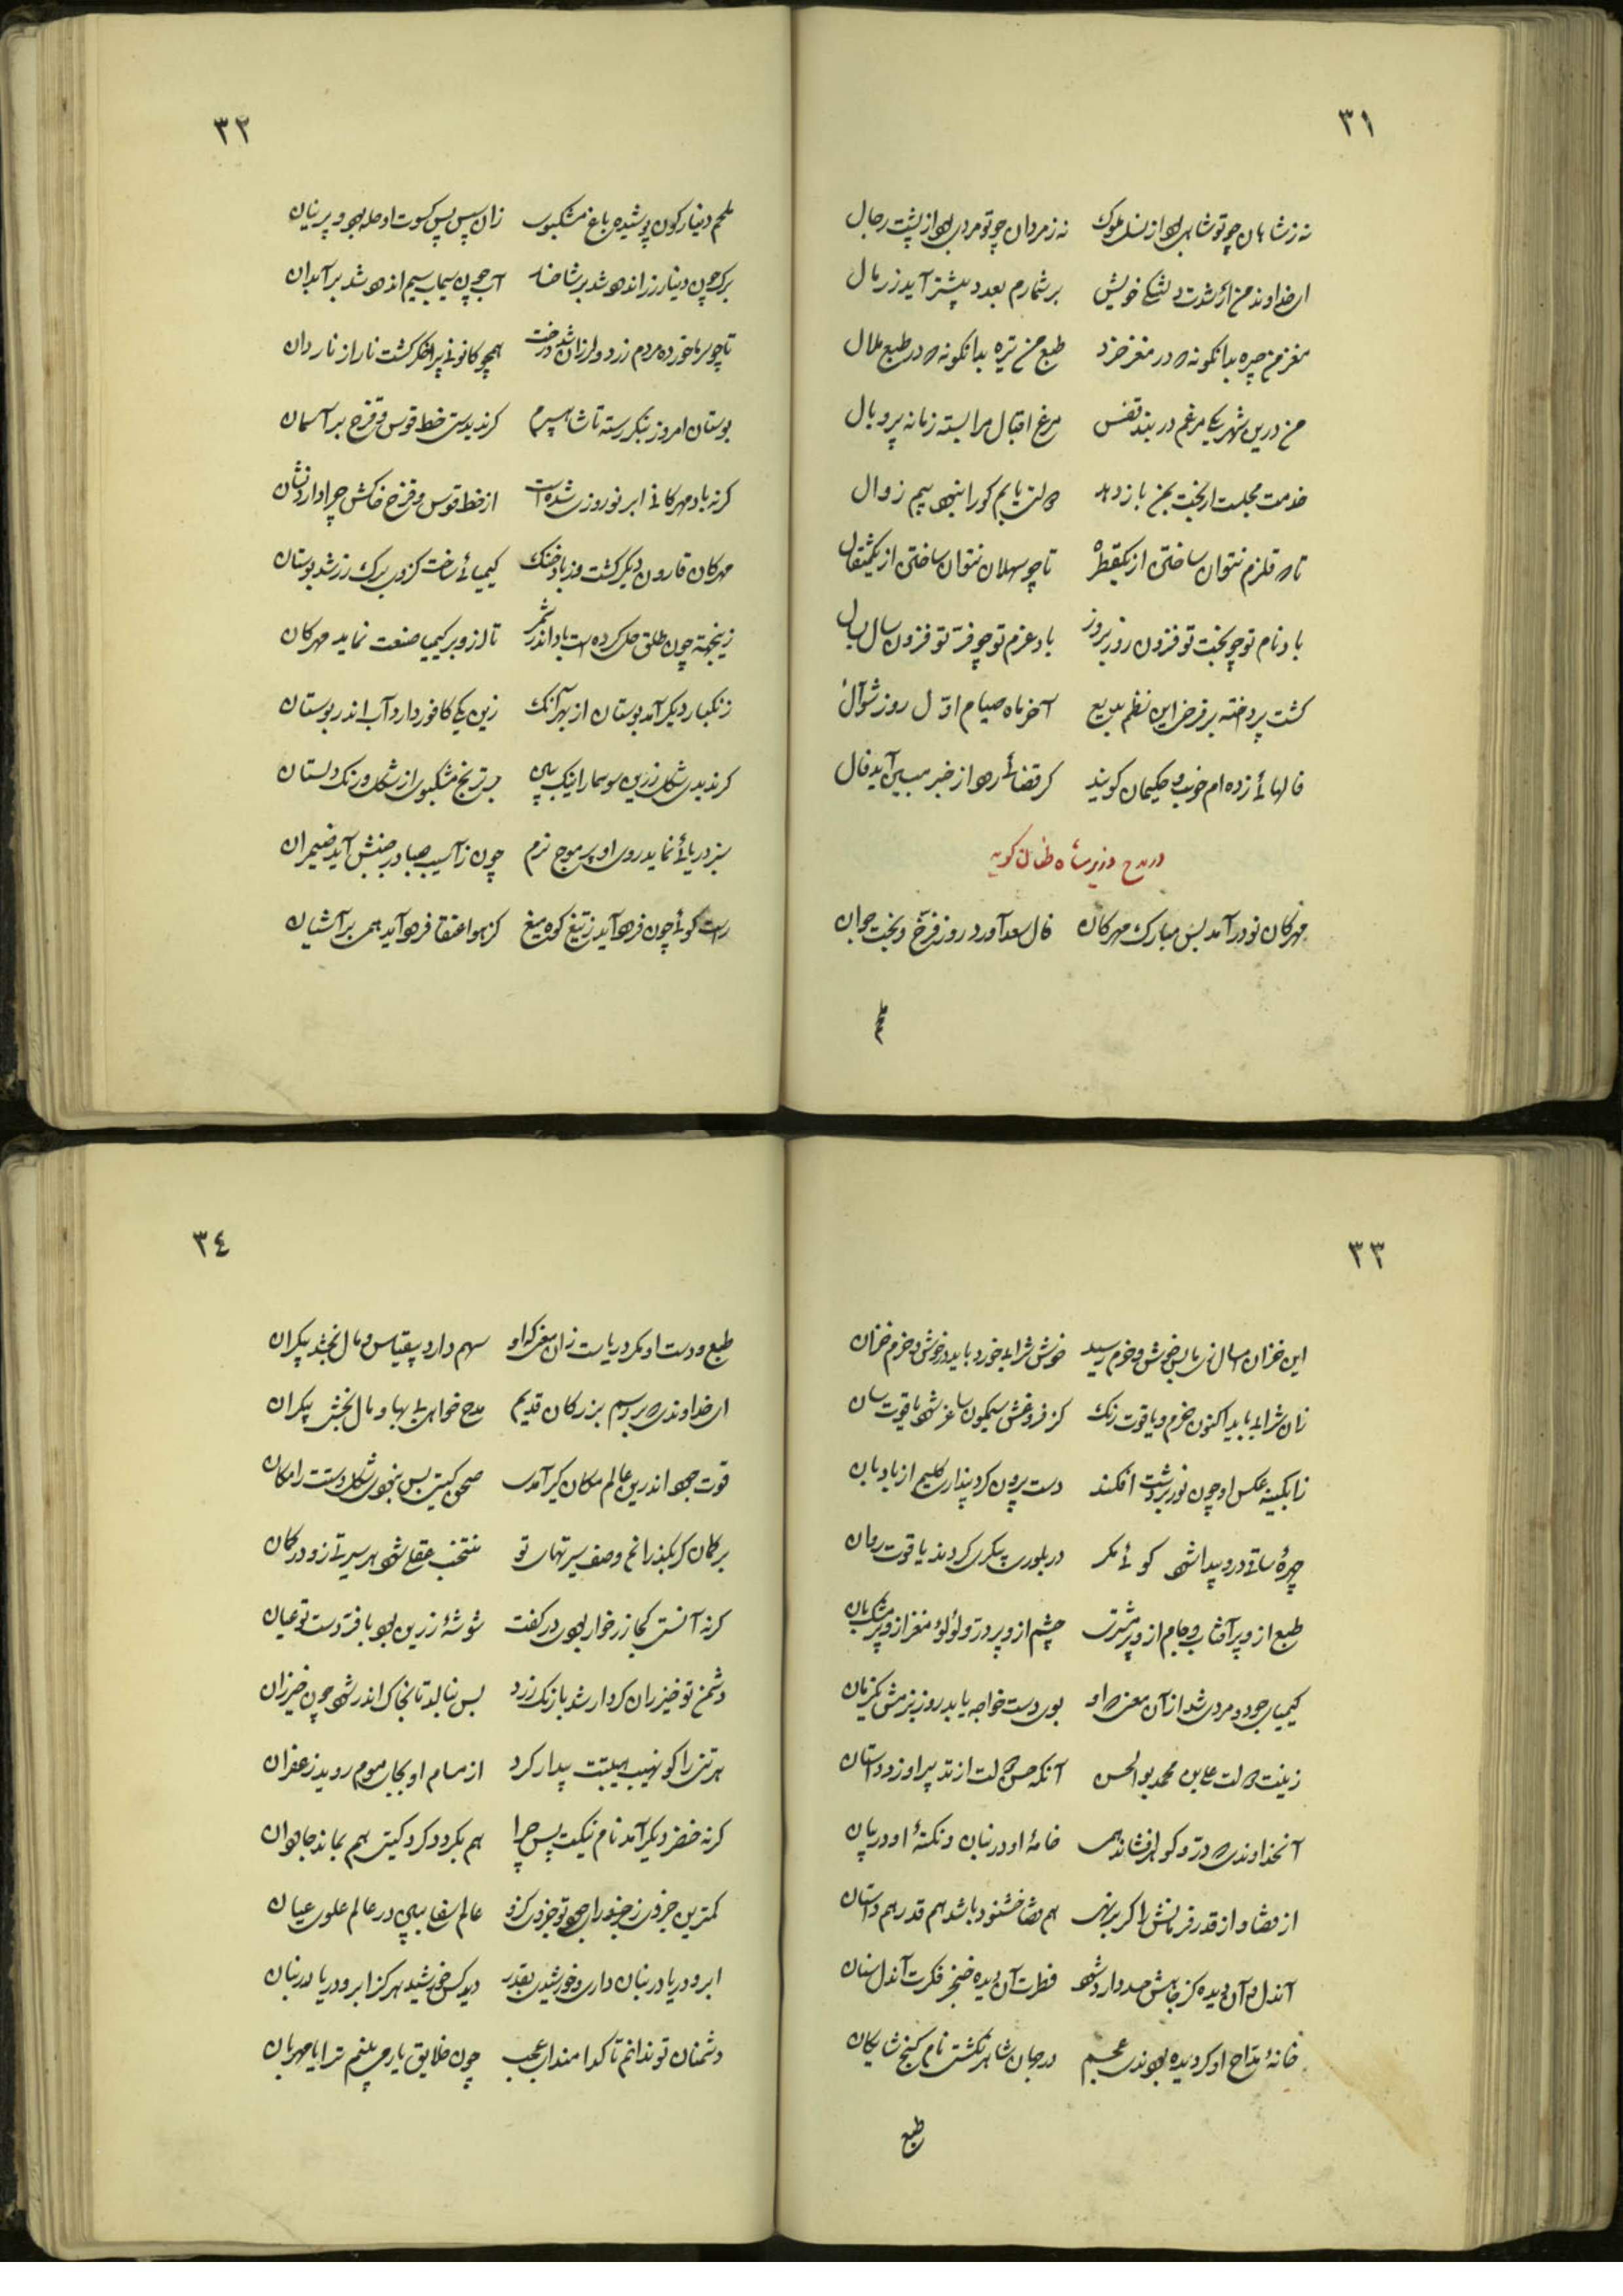 ۳۱
نه ز شاهان چو تو شاهی بود از نسل ملوک نه ز مردان چو تو مردی بود از پشت رجال
ای خداوند من از شدت دلتنگی خویش بر شمارم بعدد بیشتر آید ز رمال
مغز من چیره بدانگونه که در مغز خرد طبع من تیره بدانگونه که در طبع ملال
من درین شهر یکی مرغم در بند قفس مرغ اقبال مرا بسته زمانه پر و بال
خدمت مجلست ار بخت بمن باز دهد دولتی یابم کو را نبود بیم زوال
تا که قلزم نتوان ساختن از یکقطره تا چو سهلان نتوان ساختن از یکمثقال
باد نام تو چو بخت تو فزون روز بروز باد عزم تو چو فر تو فزون سال بسال
گشت پرداخته بر فرخ این نظم بدیع آخر ماه صیام اول روز شوال
فالهائی زده ام خوب و حکیمان گویند کز قضائی رود از خیر مبین آید فال
در مدح وزیر شاه طغان گوید
مهرگان نو درآمد بس مبارک مهرگان فال سعد آورد روز فرخ و بخت جوان
ملحم
۳۲
ملحم دینارگون پوشید باغ مشکبوی زان سپس کسوت او حله بود و پرنیان
برگ چون دینار زراندود شد بر شاخها آب چون سیماب سیم اندود شد بر آبدان
تا چو سرما خورده مردم زرد و لرزان شد درخت همچو کانونی پر اخگر گشت نار از ناردان
بوستان امروز بنگر رسته تا شاهسپرم گر ندیدستی خط قوس و قزح بر آسمان
گرنه باد مهرگانی ابر نوروزی شده است از خط قوس و قزح خاکش چرا دارد نشان
مهرگان قارون دیگر گشت وز باد خنک کیمیائی ساخت کز وی برگ زر شد بوستان
زینجهة چون طلق حل کرده است باد اندر شمر تا از و بر کیمیا صنعت نماید مهرگان
زنگبار دیگر آمد بوستان از بهر آنک زین یکی کافور دارد آب اندر بوستان
گر ندیدی شکل زرین بوسها را اینک ببین بر ترنج مشکبوی از شکل و رنگ دلستان
سبز دریائی نماید روی او پر موج نرم چون ز آسیب صبا در جنبش آید ضیمران
راست گوئی چون فرود آید ز تیغ کوه میغ کز هوا عنقا فرود آید همی بر آشیان
۳۳
این خزان امسال زی ما بس خوش و خرم رسید خوش شرابی خورد باید در خوش و خرم خزان
زان شرابی باید اکنون خرم و یاقوت رنگ کز فروغش سیمگون ساغر شود یاقوت سان
ز آبگینه عکس او چون نور بر دست افکند دست بیرون کرد پنداری کلیم از بادبان
چهرهٔ ساقی درو پیدا شود گوئی مگر در بلورین پیکری کردند یاقوت روان
طبع از و پر آفتاب و جام از و پر مشتری چشم از و پر در و لؤلؤ مغز از و پر مشک و بان
کیمیای جود و مردی شد از آن معنی که او بوی دست خواجه یابد روز بزمش یکزمان
زینت دولت علی بن محمد بوالحسن آنکه حسن دولت از تدبیر او زد داستان
آنخداوندی که در و گوهر افشاند همی خامهٔ او در بنان و نکتهٔ او در بیان
از قضا و از قدر فرمانش را گر برنهی هم قضا خشنود باشد هم قدر همداستان
آندل و آن دیده کز جاهش حسد وارد شود فطرت آن دیده خنجر فکرت آندل سنان
خانهٔ مداح او گردیده بودندی عجم در جهان شاهی نگشتی نام گنج شایگان
طبع
۳٤
طبع و دست او مگر دریاست زان معنی که او سهم دارد بیقیاس و مال بخشد بیکران
ای خداوندی که بر رسم بزرگان قدیم مدح خواهی بی بها و مال بخشی بیکران
قوت جود اندرین عالم مکان گیر آمدی صحن گیتی بس نبودی شکل دستت را مکان
بر گمان گر بگذرانم وصف سیرتهای تو منتخب عقلی شود هر سیرتی زو در گمان
گرنه آنستی کجا زر خوار بودی در کفت شوشهٔ زرین بودی بافتهٔ دستت عیان
دشمن تو خیزران کردار شد باریک و زرد بس بنالد تا بخاک اندر شود چون خیزران
هر تنی را کو نهیب هیبتت بیدار کرد از مسام او بجای موم روید زعفران
گرنه خضر دیگر آمد نام نیکت پس چرا هم بگردد گرد گیتی هم بماند جاودان
کمترین جزوی ز جزوی را چو تو جزوی کند عالم سفلی ببینی در عالم علوی عیان
ابر و دریا در بنان داری و خورشیدی بقدر دید کس خورشید هرگز ابر و دریا در بنان
دشمنان تو ندانم تا کدامند ای عجب چون خلایق یار می بینم ترا یا مهربان